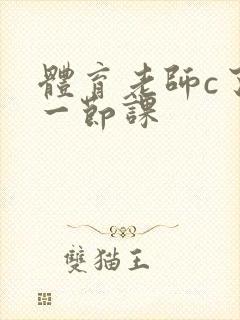 體育老師c了
一節課
雙猫王